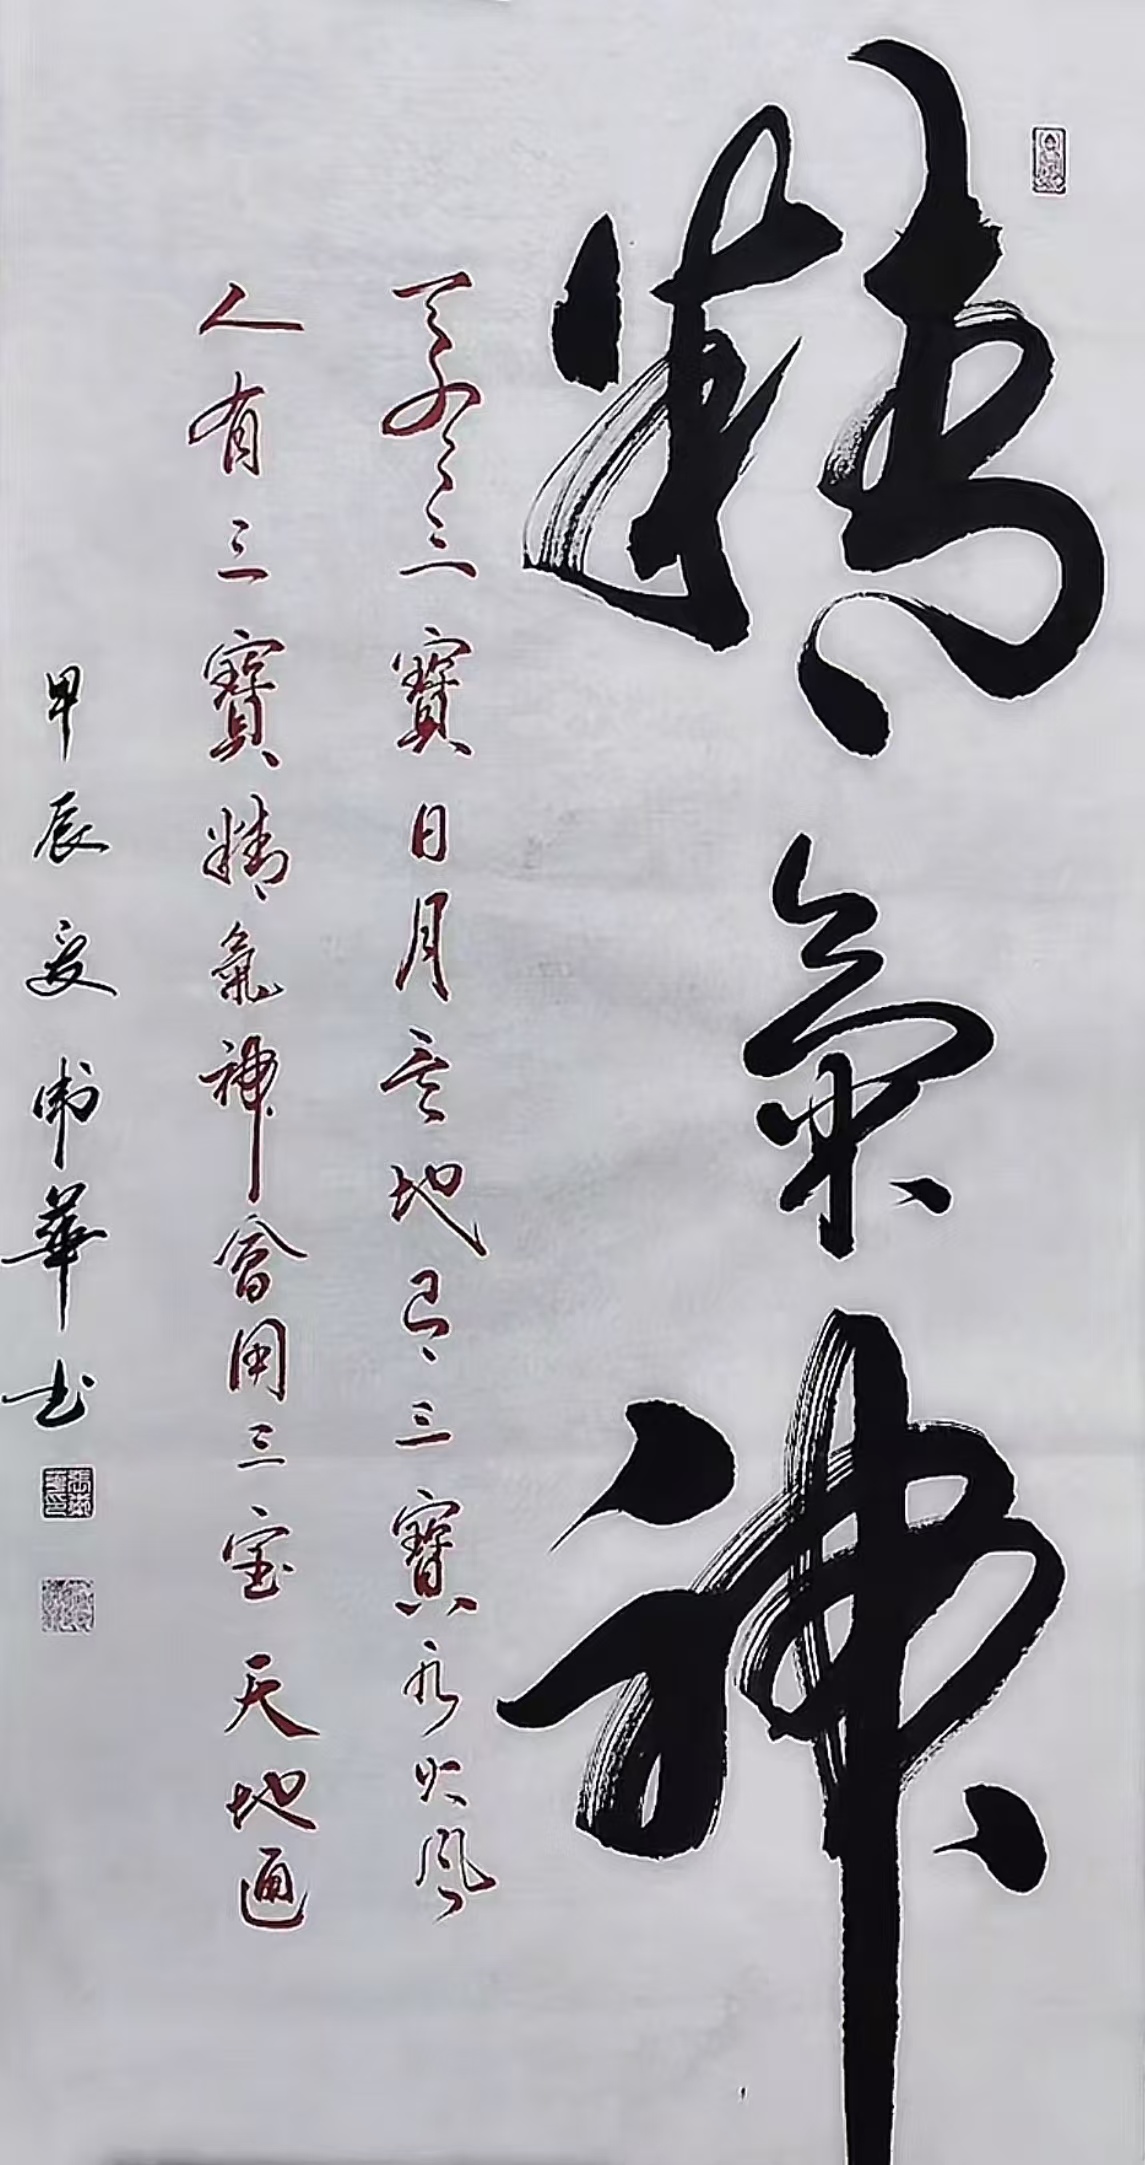 精氣神
天有三寶日月星地有三寶水火風
人有三寶精氣神會用三宝天地通
甲辰夏衛華书